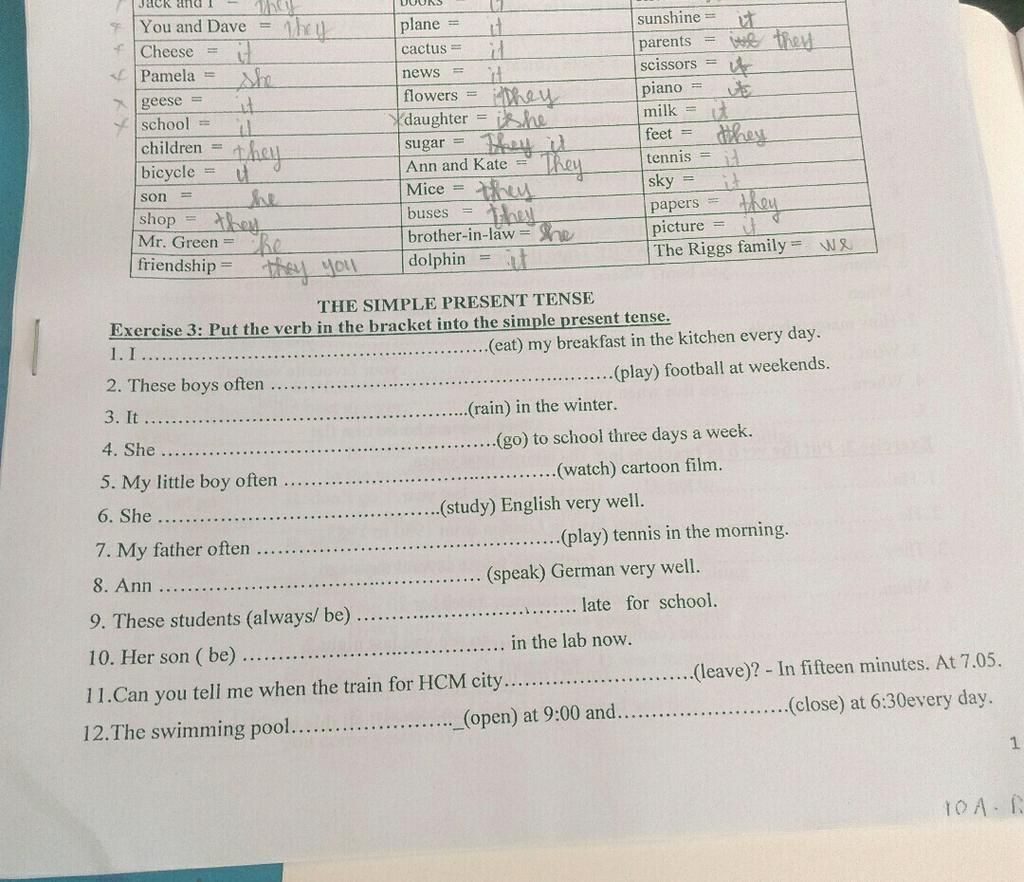 Jack and I = They
books it
You and Dave = They
plane = it
sunshine = it
Cheese = it
cactus = it
parents = we they
Pamela = she
news = it
scissors = it
geese = it
flowers = it they
piano = it
school = it
daughter = it she
milk = it
children = they
sugar = They it
feet = they
bicycle = it
Ann and Kate = They
tennis = it
son = he
Mice = they
sky = it
shop = they
buses = they
papers = they
Mr. Green = he
brother-in-law = he
picture = it
friendship = they you
dolphin = it
The Riggs family = we
THE SIMPLE PRESENT TENSE
Exercise 3: Put the verb in the bracket into the simple present tense.
1. I ........................................................(eat) my breakfast in the kitchen every day.
2. These boys often ........................................................(play) football at weekends.
3. It ........................................................(rain) in the winter.
4. She ........................................................(go) to school three days a week.
5. My little boy often ............................................(watch) cartoon film.
6. She ................................................(study) English very well.
7. My father often ..................................................(play) tennis in the morning.
8. Ann ..................................................... (speak) German very well.
9. These students (always/ be) ................................... late for school.
10. Her son ( be) ............................................ in the lab now.
11.Can you tell me when the train for HCM city...............................(leave)? - In fifteen minutes. At 7.05.
12.The swimming pool..........................._(open) at 9:00 and............................(close) at 6:30every day.
1
10A.